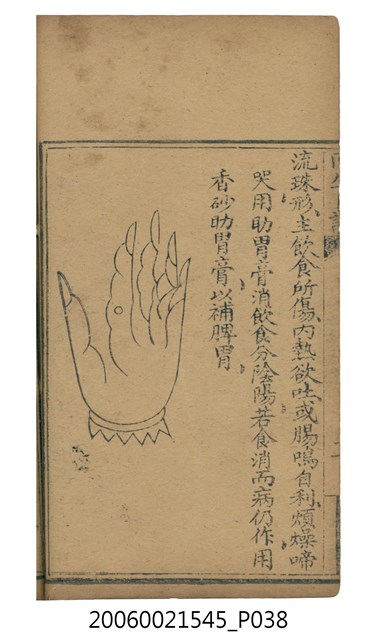 流珠形主飲食所傷內熱欲吐或腸鳴自利煩燥啼
哭用助胃膏消飲食分陰陽若食消而病仍作用
香砂助胃膏以補脾胃
20060021545_P038